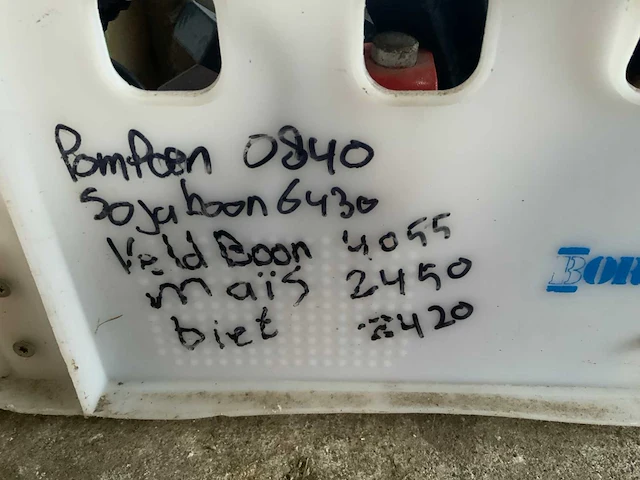 Pompoen 0840
Sojaboon 6430
Veld Boon 4055
maïs 2450
biet
BOR